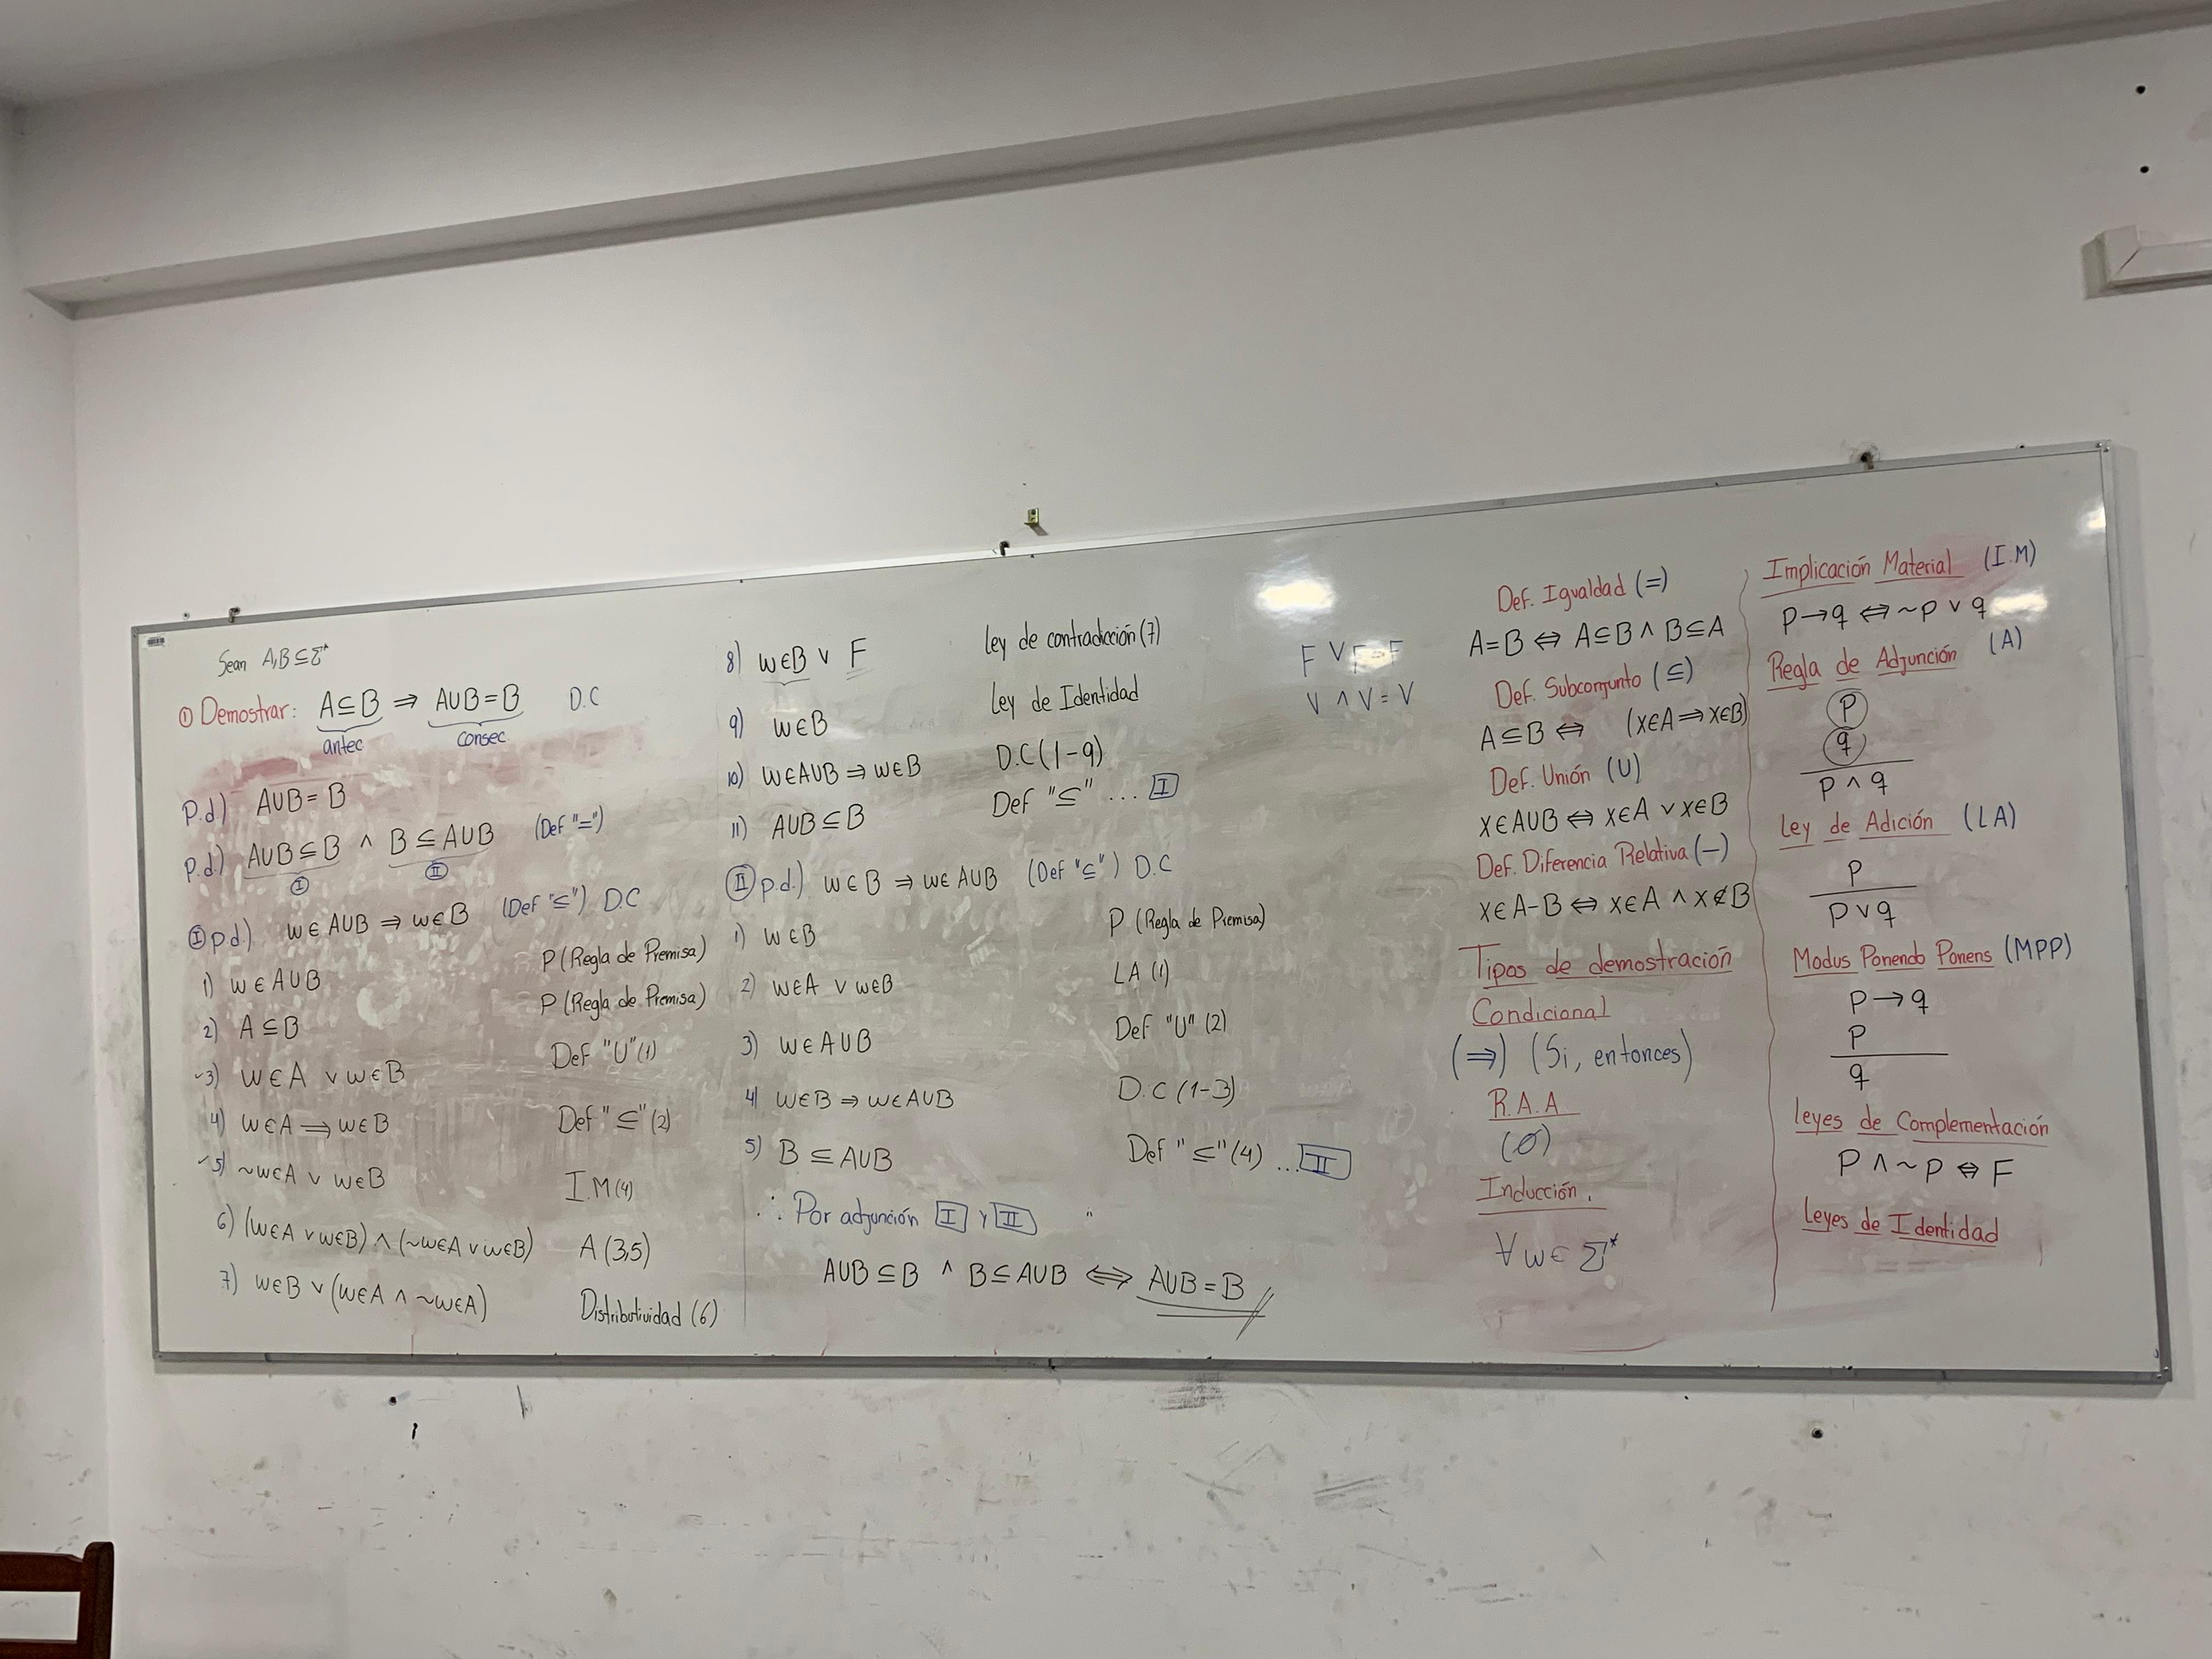 Sean A,B ⊆ Σ*
① Demostrar: A⊆B ⇒ A∪B=B D.C
antec consec
P.d.) A∪B = B
P.d.) A∪B ⊆ B ∧ B ⊆ A∪B (Def "=")
Ⓘ Ⓘⓘ
Ⓘ p.d.) w∈A∪B ⇒ w∈B (Def "⊆") D.C
1) w∈A∪B P (Regla de Premisa)
2) A⊆B P (Regla de Premisa)
✓3) w∈A ∨ w∈B Def "∪" (1)
4) w∈A ⟹ w∈B Def "⊆" (2)
✓5) ~w∈A ∨ w∈B I.M (4)
6) (w∈A ∨ w∈B) ∧ (~w∈A ∨ w∈B) A (3,5)
7) w∈B ∨ (w∈A ∧ ~w∈A) Distributividad (6)
8) w∈B ∨ F Ley de contradicción (7)
9) w∈B Ley de Identidad
10) w∈A∪B ⇒ w∈B D.C (1-9)
11) A∪B ⊆ B Def "⊆" ... I
II p.d.) w∈B ⇒ w∈A∪B (Def "⊆") D.C
1) w∈B P (Regla de Premisa)
2) w∈A ∨ w∈B LA (1)
3) w∈A∪B Def "∪" (2)
4) w∈B ⇒ w∈A∪B D.C (1-3)
5) B ⊆ A∪B Def "⊆" (4) ... II
∴ Por adjunción I y II
A∪B ⊆ B ∧ B ⊆ A∪B ⟺ A∪B = B
F ∨ F = F
V ∧ V = V
Def. Igualdad (=)
A=B ⇔ A⊆B ∧ B⊆A
Def. Subconjunto (⊆)
A⊆B ⇔ (x∈A ⟹ x∈B)
Def. Unión (∪)
x∈A∪B ⇔ x∈A ∨ x∈B
Def. Diferencia Relativa (−)
x∈A-B ⇔ x∈A ∧ x∉B
Tipos de demostración
Condicional
(⇒) (Si, entonces)
R.A.A
(∅)
Inducción.
∀ w∈ Σ*
Implicación Material (I.M)
P→q ⇔ ~p ∨ q
Regla de Adjunción (A)
P
q
P ∧ q
Ley de Adición (LA)
P
P ∨ q
Modus Ponendo Ponens (MPP)
P → q
P
q
Leyes de Complementación
P ∧ ~P ⇔ F
Leyes de Identidad